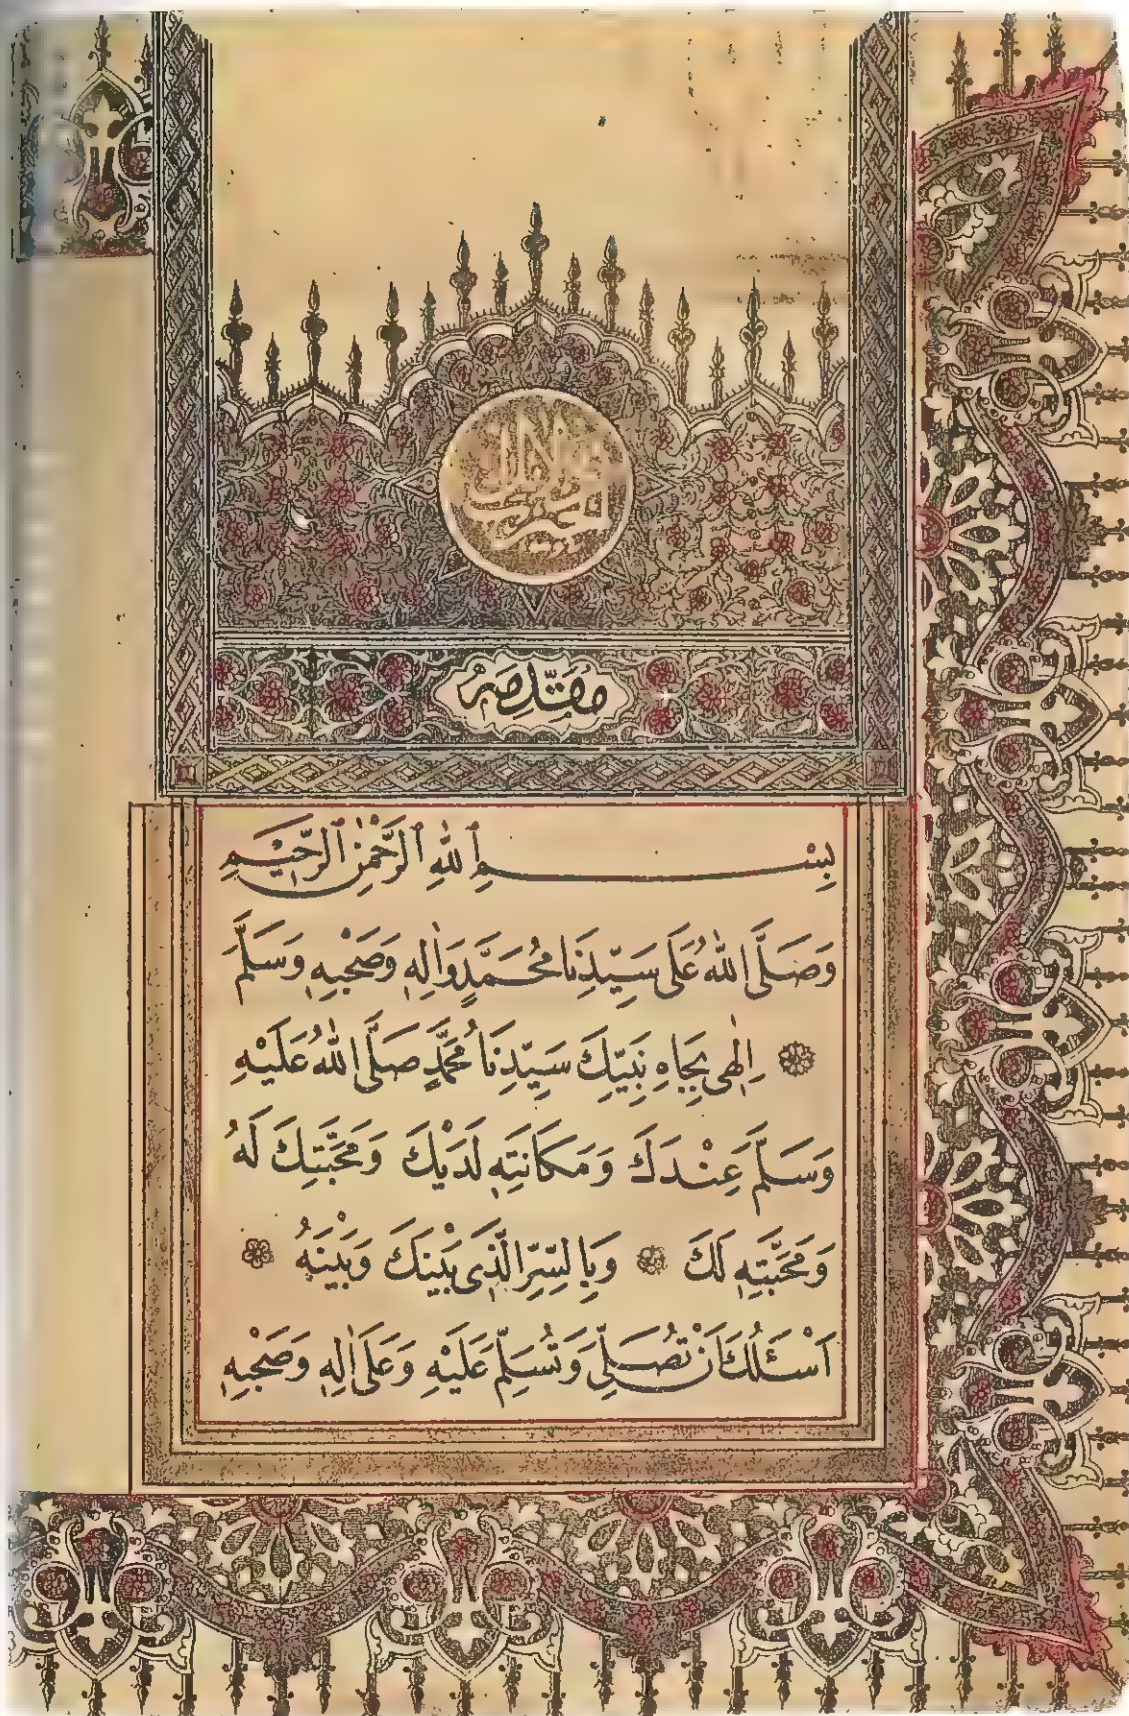 مُقَدِّمَه
بِسْمِ ٱللهِ ٱلرَّحْمٰنِ ٱلرَّحِيْمِ
وَصَلَّى اللهُ عَلَى سَيِّدِنَا مُحَمَّدٍ وَاٰلِهٖ وَصَحْبِهٖ وَسَلَّمَ
اِلٰهِى بِجَاهِ نَبِيِّكَ سَيِّدِنَا مُحَمَّدٍ صَلَّى اللهُ عَلَيْهِ
وَسَلَّمَ عِنْدَكَ وَمَكَانَتِهٖ لَدَيْكَ وَمَحَبَّتِكَ لَهُ
وَمَحَبَّتِهٖ لَكَ وَبِالسِّرِّ الَّذِى بَيْنَكَ وَبَيْنَهُ
اَسْئَلُكَ اَنْ تُصَلِّىَ وَتُسَلِّمَ عَلَيْهِ وَعَلَى اٰلِهٖ وَصَحْبِهٖ